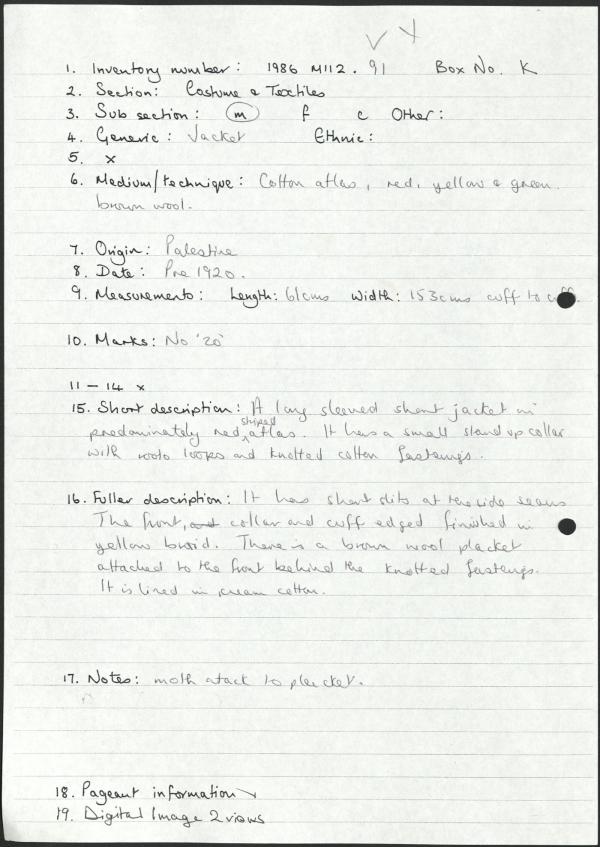 1. Inventory number: 1986 M112.91 Box No. K
2. Section: Costume & Textiles
3. Sub section: m f c Other:
4. Generic: Jacket Ethnic:
5. x
6. Medium/technique: Cotton atlas, red, yellow & green.
brown wool.
7. Origin: Palestine
8. Date: Pre 1920.
9. Measurements: Length: 61cms Width: 153cms cuff to
10. Marks: No '20'
11 – 14 x
15. Short description: A long sleeved short jacket in
predominately red striped atlas. It has a small stand up collar
with loops and knotted cotton fastenings.
16. Fuller description: It has short slits at the side seams
The front, collar and cuff edged finished in
yellow braid. There is a brown wool placket
attached to the front behind the knotted fastenings.
It is lined in cream cotton.
17. Notes: moth atack to placket.
18. Pageant information
19. Digital Image 2 views